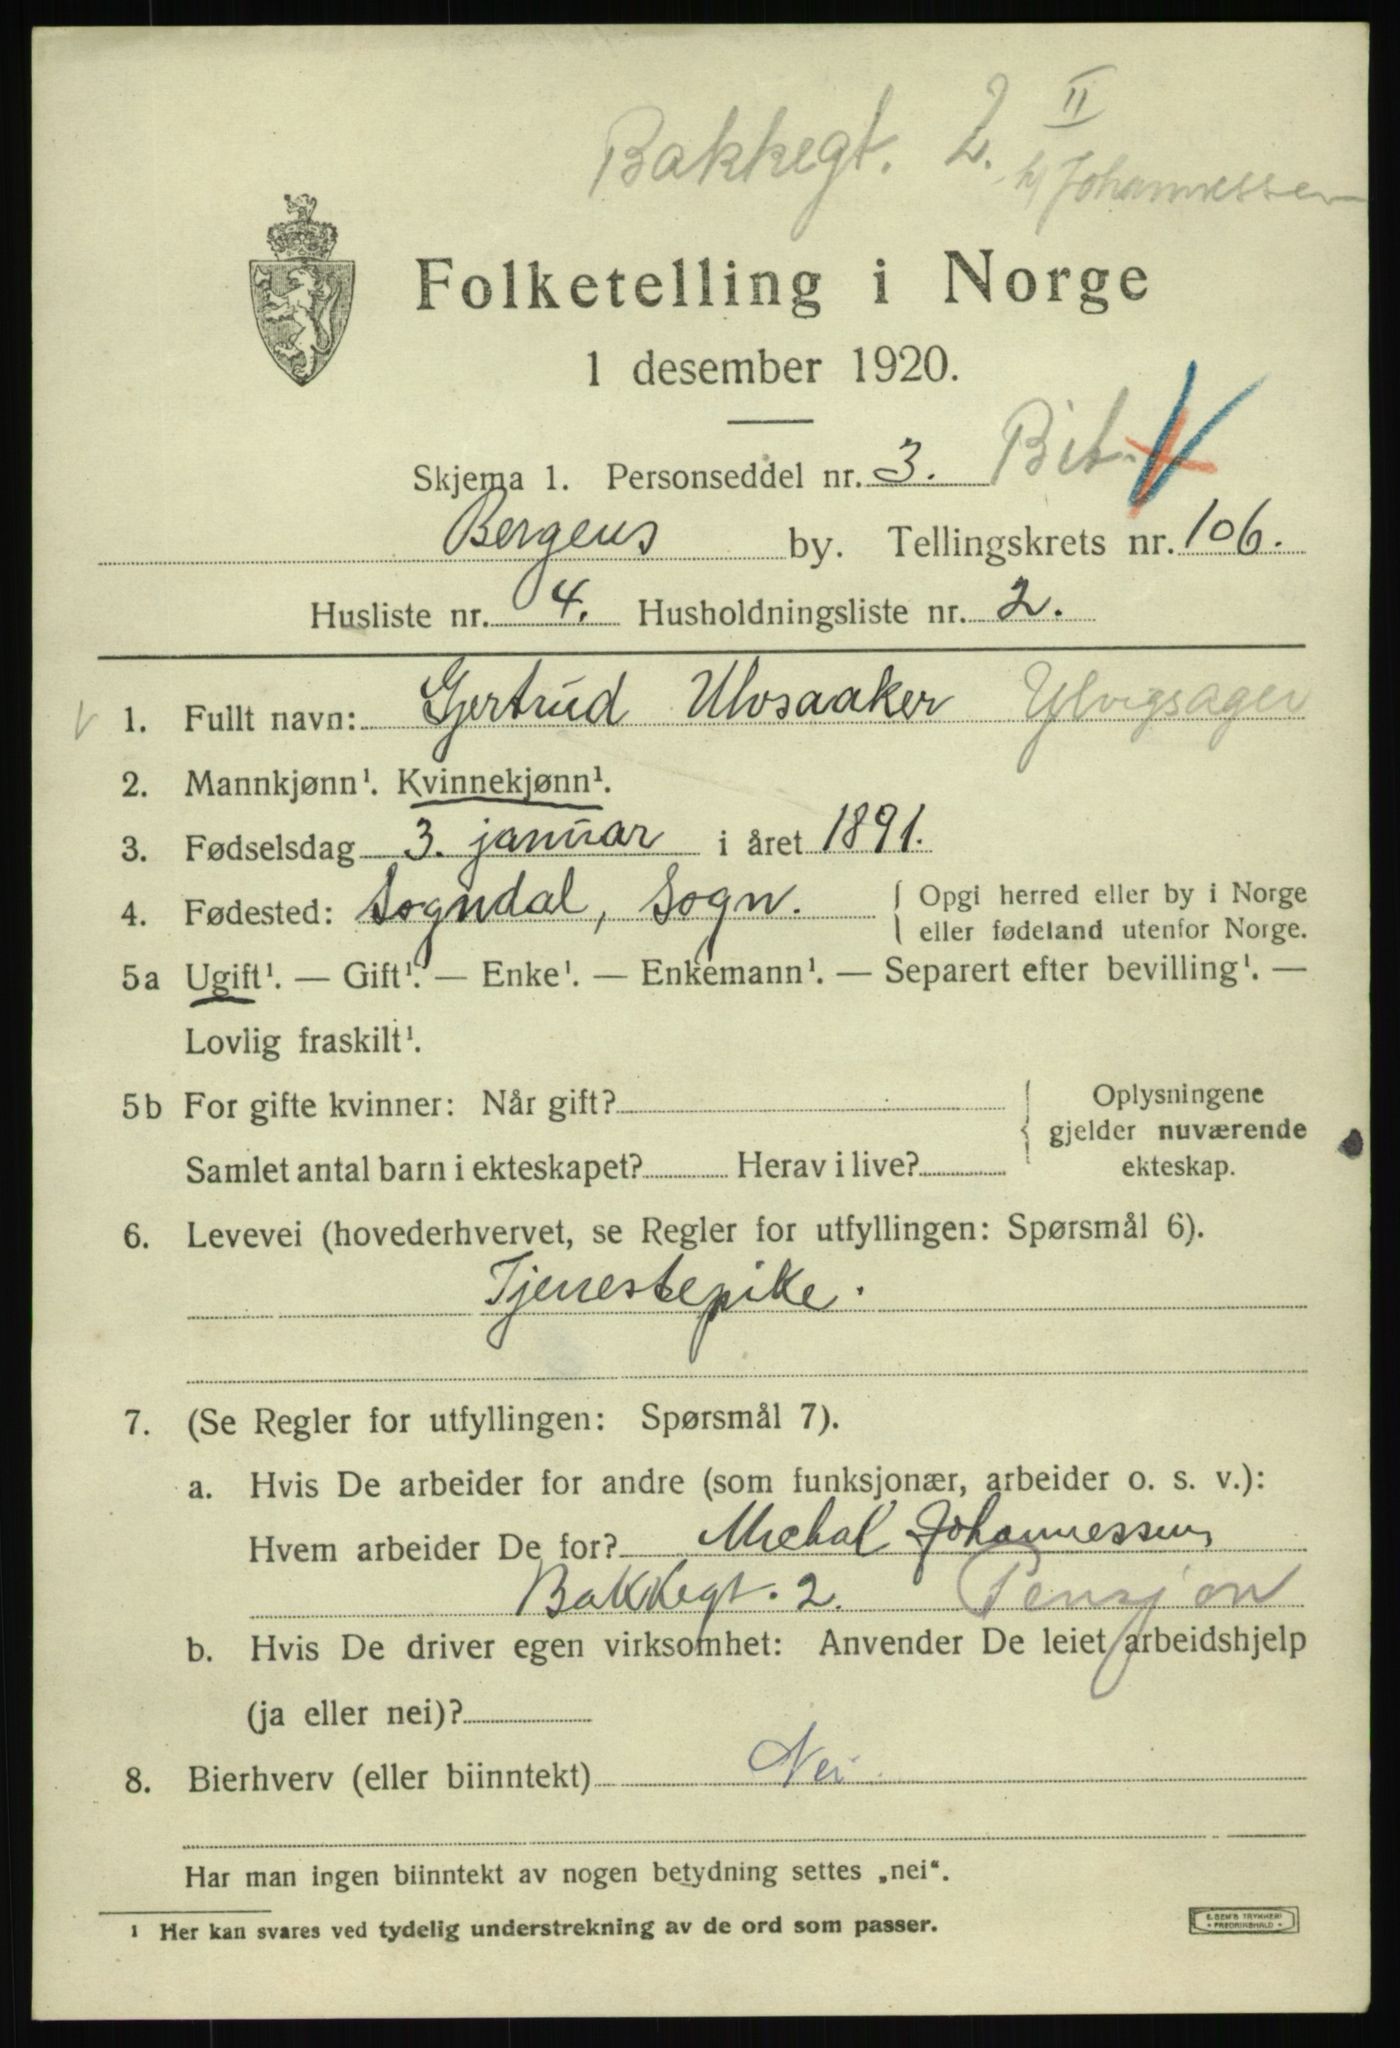 Bakkegt. 2. II
h/ Johannessen
Folketelling i Norge
1 desember 1920.
Skjema 1. Personseddel nr. 3. Bit.
Bergens by. Tellingskrets nr. 106.
Husliste nr. 4. Husholdningsliste nr. 2.
1. Fullt navn: Gjertrud Ulvsaaker Ylvisager
2. Mannkjønn¹. Kvinnekjønn¹.
3. Fødselsdag 3. januar i året 1891.
4. Fødested: Sogndal, Sogn. { Opgi herred eller by i Norge
eller fødeland utenfor Norge.
5a Ugift¹. — Gift¹. — Enke¹. — Enkemann¹. — Separert efter bevilling¹. —
Lovlig fraskilt¹.
5b For gifte kvinner: Når gift?
Samlet antal barn i ekteskapet? Herav i live?
{ Oplysningene
gjelder nuværende
ekteskap.
6. Levevei (hovederhvervet, se Regler for utfyllingen: Spørsmål 6).
Tjenestepike.
7. (Se Regler for utfyllingen: Spørsmål 7).
a. Hvis De arbeider for andre (som funksjonær, arbeider o. s. v.):
Hvem arbeider De for? Michal Johannessen,
Bakkegt. 2. Pensjon
b. Hvis De driver egen virksomhet: Anvender De leiet arbeidshjelp
(ja eller nei)?
8. Bierhverv (eller biinntekt) Nei
Har man ingen biinntekt av nogen betydning settes „nei“.
¹ Her kan svares ved tydelig understrekning av de ord som passer.
E. SEM'S TRYKKERI
FREDRIKSHALD